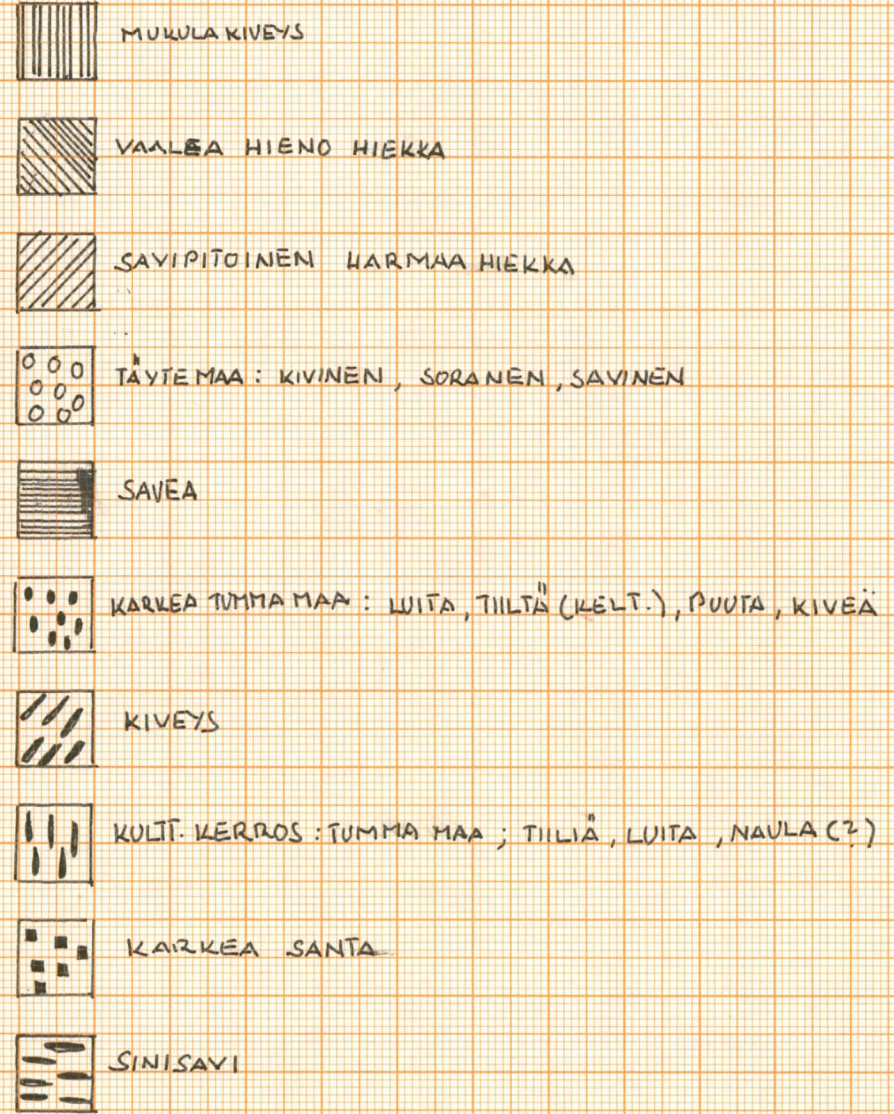 MUKULAKIVEYS
VAALEA HIENO HIEKKA
SAVIPITOINEN HARMAA HIEKKA
TÄYTEMAA: KIVINEN, SORANEN, SAVINEN
SAVEA
KARKEA TUMMA MAA: LUITA, TIILTÄ (KELT.), PUUTA, KIVEÄ
KIVEYS
KULTT. KERROS: TUMMA MAA; TIILIÄ, LUITA, NAULA (?)
KARKEA SANTA
SINISAVI